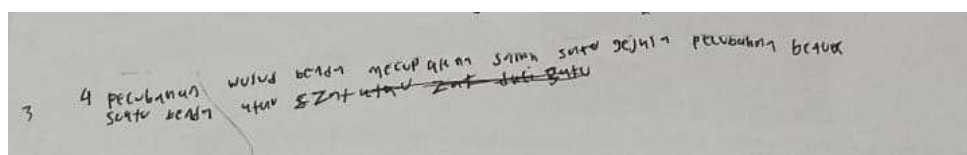 4 perubahan wujud benda merupakan salah satu gejala perubahan bentuk
3 suatu benda atau